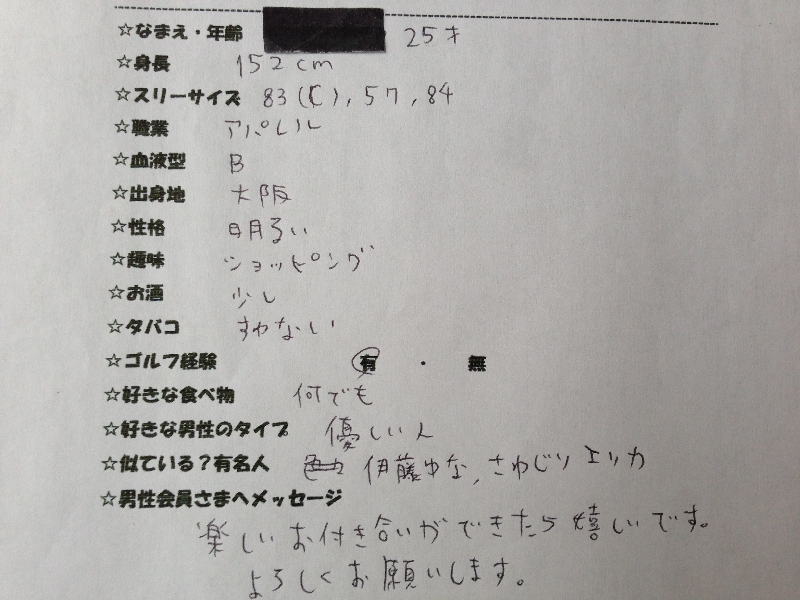 ☆なまえ・年齢 25才
☆身長 152cm
☆スリーサイズ 83(C), 57, 84
☆職業 アパレル
☆血液型 B
☆出身地 大阪
☆性格 明るい
☆趣味 ショッピング
☆お酒 少し
☆タバコ すわない
☆ゴルフ経験 有 ・ 無
☆好きな食べ物 何でも
☆好きな男性のタイプ 優しい人
☆似ている?有名人 伊藤ゆな, さわじりエリカ
☆男性会員さまへメッセージ
楽しいお付き合いができたら嬉しいです。
よろしくお願いします。